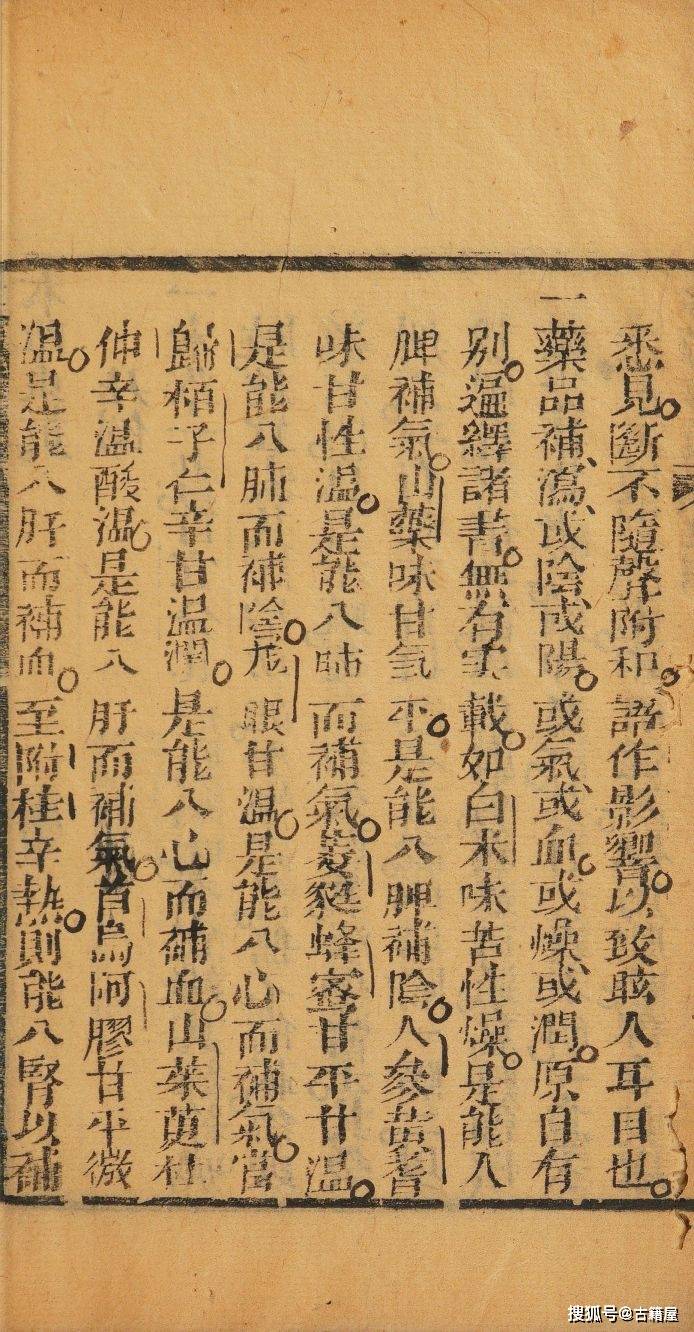 悉見斷不隨聲附和語作影響以致眩人耳目也
一藥品補瀉或陰或陽或氣或血或燥或潤原自有
別遍繹諸書無有實載如白朮味苦性燥是能入
脾補氣山藥味甘氣平是能入脾補陰人參黃耆
味甘性溫是能入肺而補氣蔞蕤蜂蜜甘平甘溫
是能入肺而補陰龙眼甘溫是能入心而補氣當
歸栢子仁辛甘溫潤是能入心而補血山茱萸杜
仲辛溫酸溫是能入肝而補氣首烏阿膠甘平微
溫是能入肝而補血至附桂辛熱則能入腎以補
搜狐号@古籍屋